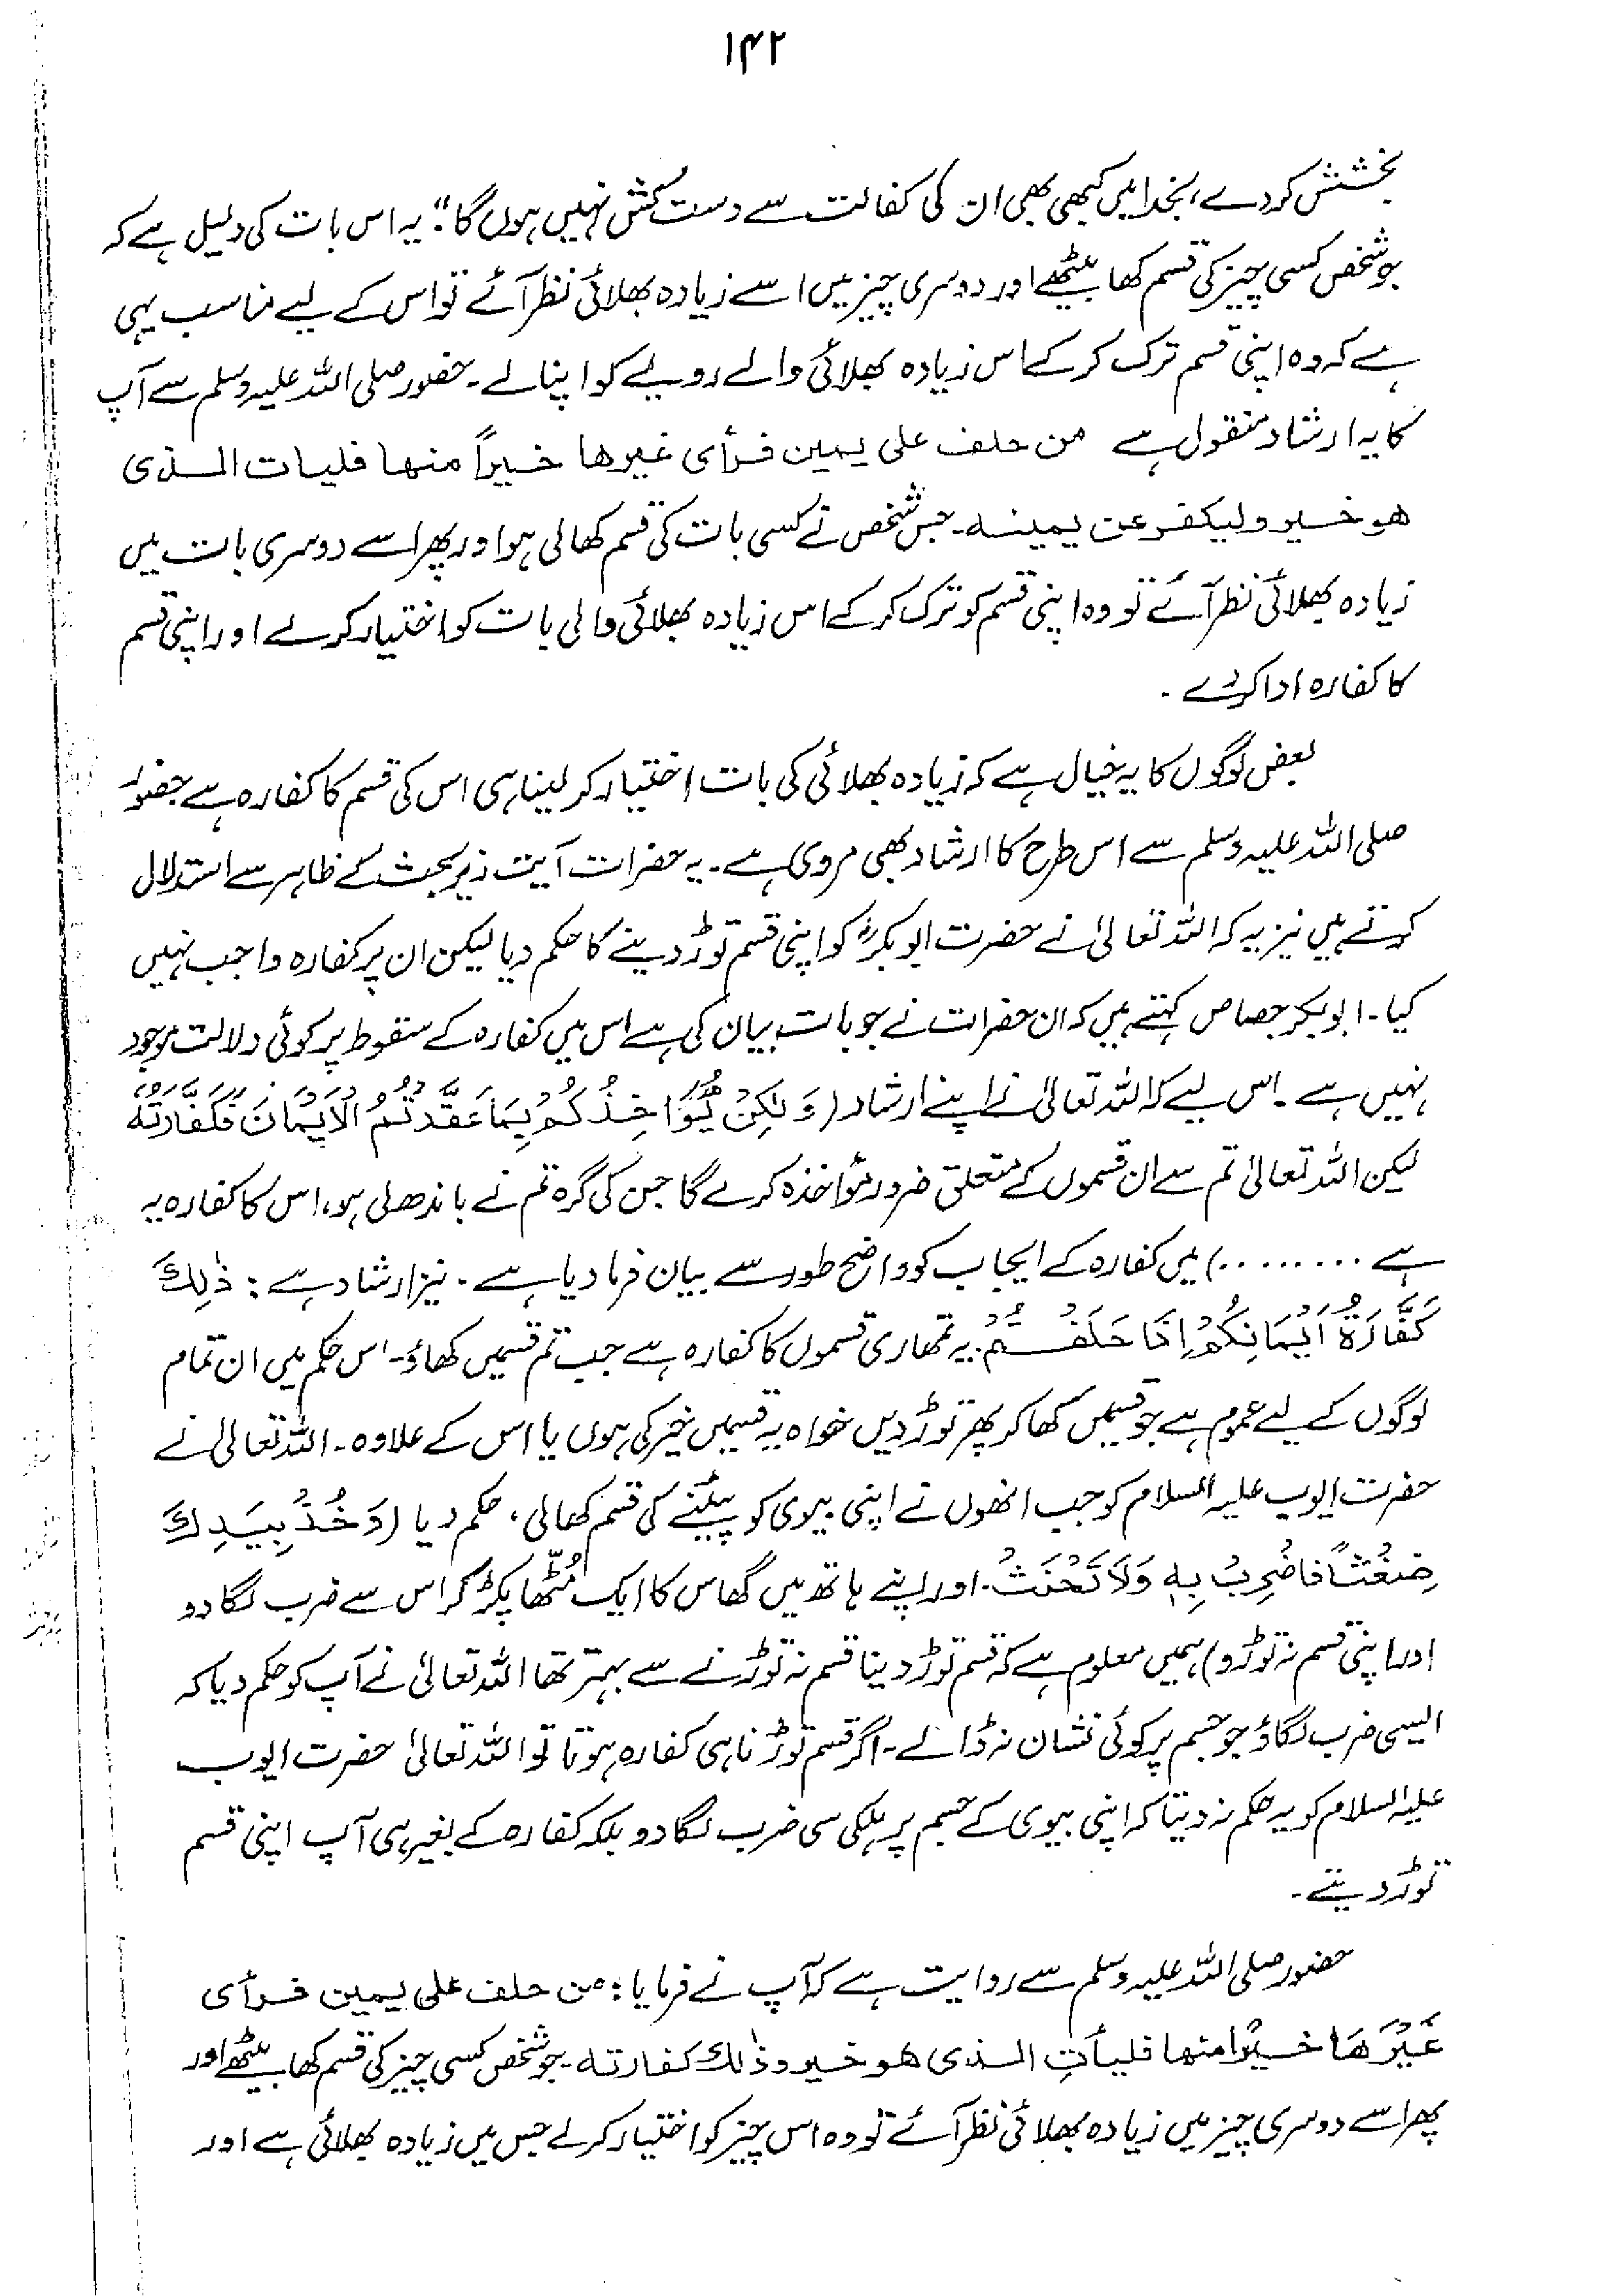 ۱۴۲
بخشش کر دے، بخدا میں کبھی بھی ان کی کفالت سے دست کش نہیں ہوں گا"۔ یہ اس بات کی دلیل ہے کہ
جو شخص کسی چیز کی قسم کھا بیٹھے اور دوسری چیز میں اسے زیادہ بھلائی نظر آئے تو اس کے لیے مناسب یہی
ہے کہ وہ اپنی قسم ترک کر کے اس زیادہ بھلائی والے رویے کو اپنا لے۔ حضور صلی اللہ علیہ وسلم سے آپ
کا یہ ارشاد منقول ہے من حلف علی یمین فرأی غیرها خیراً منها فلیات الذی
هو خیر ولیکفر عن یمینه۔ جس شخص نے کسی بات کی قسم کھا لی ہو اور پھر اسے دوسری بات میں
زیادہ بھلائی نظر آئے تو وہ اپنی قسم کو ترک کر کے اس زیادہ بھلائی والی بات کو اختیار کر لے اور اپنی قسم
کا کفارہ ادا کردے۔
بعض لوگوں کا یہ خیال ہے کہ زیادہ بھلائی کی بات اختیار کر لینا ہی اس کی قسم کا کفارہ ہے حضور
صلی اللہ علیہ وسلم سے اس طرح کا ارشاد بھی مروی ہے۔ یہ حضرات آیت زیر بحث کے ظاہر سے استدلال
کرتے ہیں نیز یہ کہ اللہ تعالیٰ نے حضرت ابو بکرؓ کو اپنی قسم توڑ دینے کا حکم دیا لیکن ان پر کفارہ واجب نہیں
کیا۔ ابو بکر جصاص کہتے ہیں کہ ان حضرات نے جو بات بیان کی ہے اس میں کفارہ کے سقوط پر کوئی دلالت موجود
نہیں ہے۔ اس لیے کہ اللہ تعالیٰ نے اپنے ارشاد (وَلٰكِنْ يُّؤَاخِذُكُمْ بِمَا عَقَّدْتُّمُ الْاَيْمَانَ فَكَفَّارَتُهُ
لیکن اللہ تعالیٰ تم سے ان قسموں کے متعلق ضرور مؤاخذہ کرے گا جن کی گرہ تم نے باندھ لی ہو، اس کا کفارہ یہ
ہے ........) میں کفارہ کے ایجاب کو واضح طور سے بیان فرما دیا ہے۔ نیز ارشاد ہے: ذٰلِكَ
كَفَّارَةُ اَيْمَانِكُمْ اِذَا حَلَفْتُمْ: یہ تمھاری قسموں کا کفارہ ہے جب تم قسمیں کھاؤ۔ اس حکم میں ان تمام
لوگوں کے لیے عموم ہے جو قسمیں کھا کر پھر توڑ دیں خواہ یہ قسمیں خیر کی ہوں یا اس کے علاوہ۔ اللہ تعالیٰ نے
حضرت ایوب علیہ السلام کو جب انھوں نے اپنی بیوی کو پیٹنے کی قسم کھا لی، حکم دیا (وَخُذْ بِيَدِكَ
ضِغْثًا فَاضْرِبْ بِهٖ وَلَا تَحْنَثْ۔ اور اپنے ہاتھ میں گھاس کا ایک مُٹھا پکڑ کر اس سے ضرب لگا دو
اور اپنی قسم نہ توڑو) ہمیں معلوم ہے کہ قسم توڑ دینا قسم نہ توڑنے سے بہتر تھا اللہ تعالیٰ نے آپ کو حکم دیا کہ
ایسی ضرب لگاؤ جو جسم پر کوئی نشان نہ ڈالے۔ اگر قسم توڑنا ہی کفارہ ہوتا تو اللہ تعالیٰ حضرت ایوب
علیہ السلام کو یہ حکم نہ دیتا کہ اپنی بیوی کے جسم پر ہلکی سی ضرب لگا دو بلکہ کفارہ کے بغیر ہی آپ اپنی قسم
توڑ دیتے۔
حضور صلی اللہ علیہ وسلم سے روایت ہے کہ آپ نے فرمایا: من حلف علی یمین فرأی
غَيْرَهَا خَيْرًا منها فلیأتِ الذی هو خیر وذٰلك کفارته۔ جو شخص کسی چیز کی قسم کھا بیٹھے اور
پھر اسے دوسری چیز میں زیادہ بھلائی نظر آئے تو وہ اس چیز کو اختیار کر لے جس میں زیادہ بھلائی ہے اور